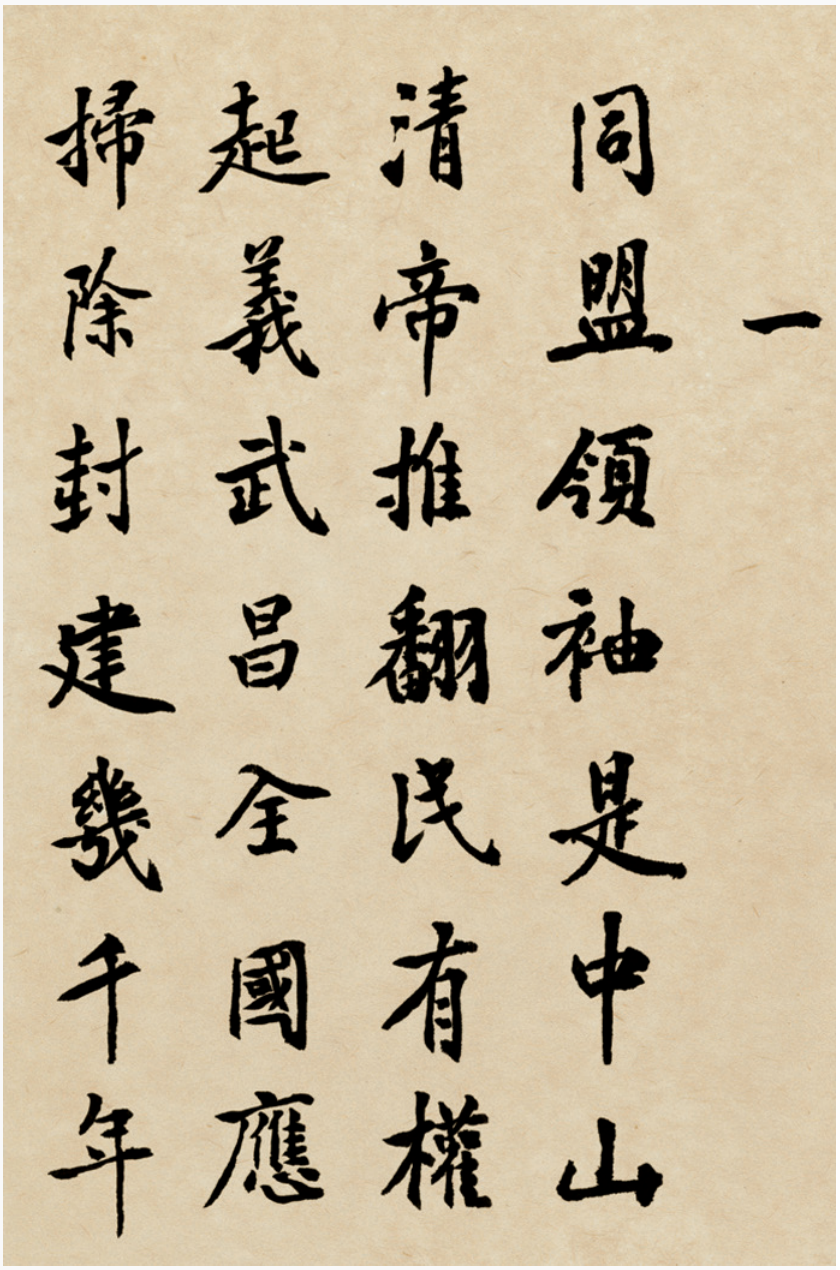 一
同盟領袖是中山
清帝推翻民有權
起義武昌全國應
掃除封建幾千年